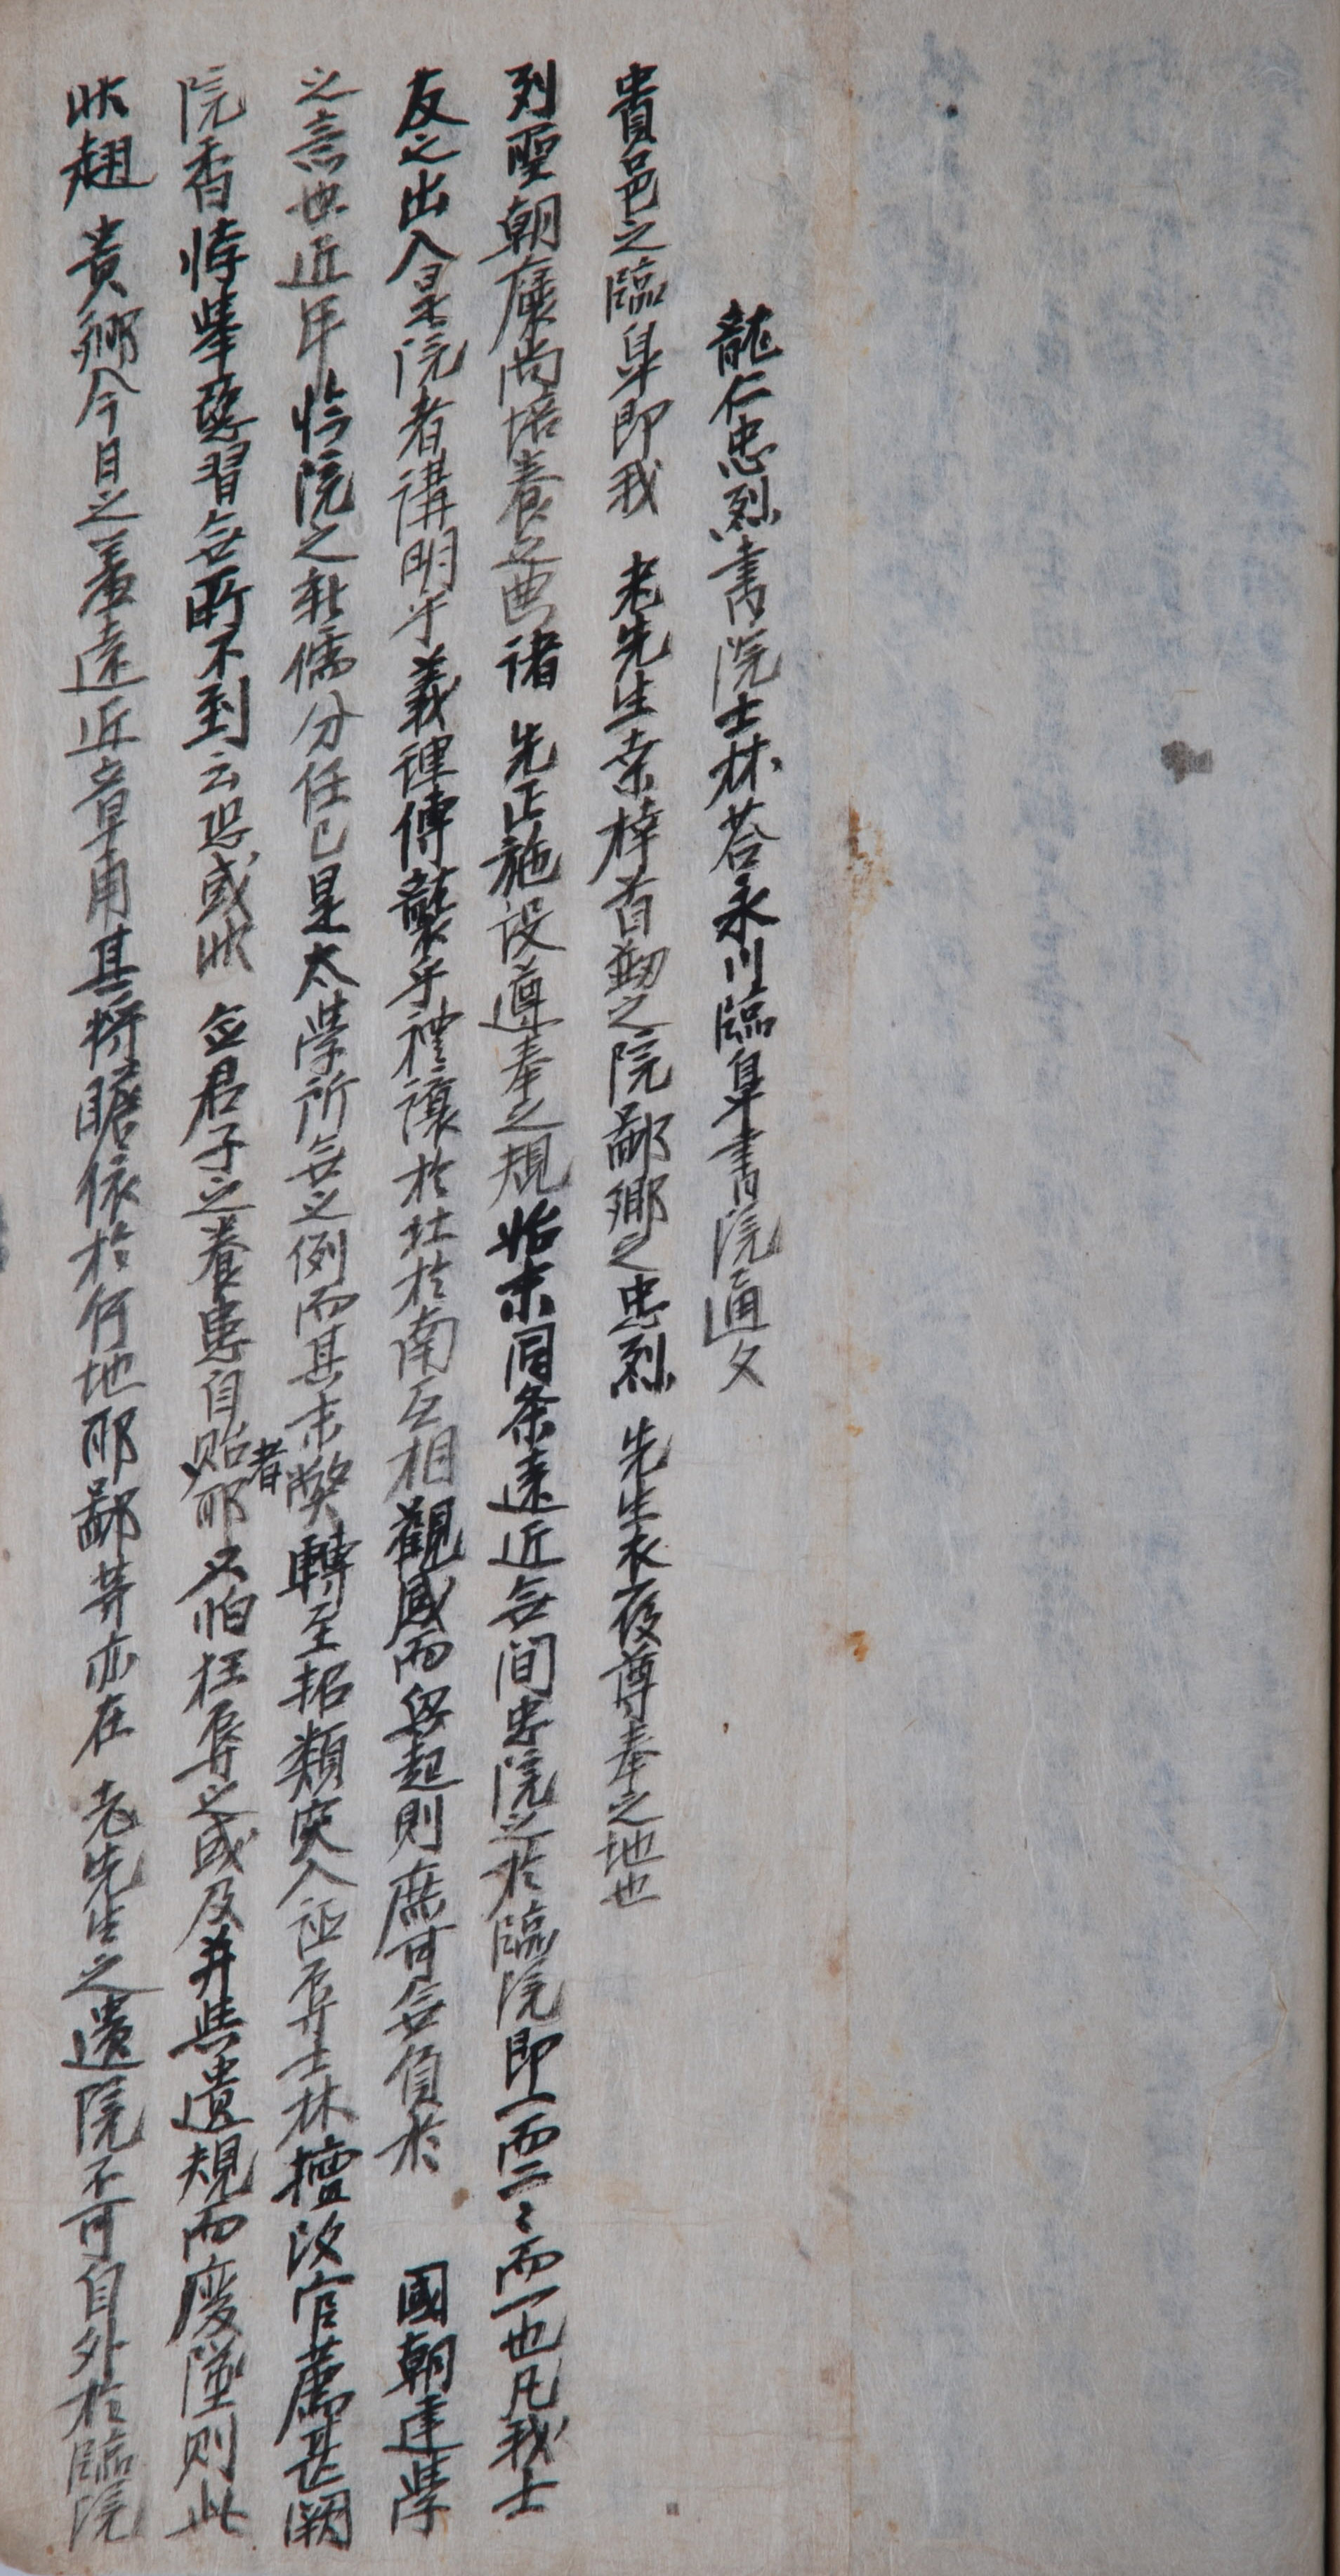 龍仁忠烈書院士林荅永川臨皐書院通文
貴邑之臨皐即我 老先生桑梓首刱之院鄙鄕之忠烈 先生衣履尊奉之地也
列聖朝廩尚培養之典諸 先正施設遵奉之規始末同条遠近無间忠院之於臨院即一而二二而一也凡我士
友之出入是院者講明乎義律傳襲乎禮讓於北於南互相觀感而興起則庶可無負於 國朝建學
之意也近年臨院之新儒分任已是太學所無之例而其末弊轉至招類突入詬辱士林擅改官薦甚闕
院香悖擧惡習無所不到云恐或非 僉君子之養患自貽者耶又怕狂辱之或及并與遺規而廢墜則此
非趐 貴鄕今日之羞遠近章甫其將瞻依於何地耶鄙等亦在 老先生之遺院不可自外於臨院